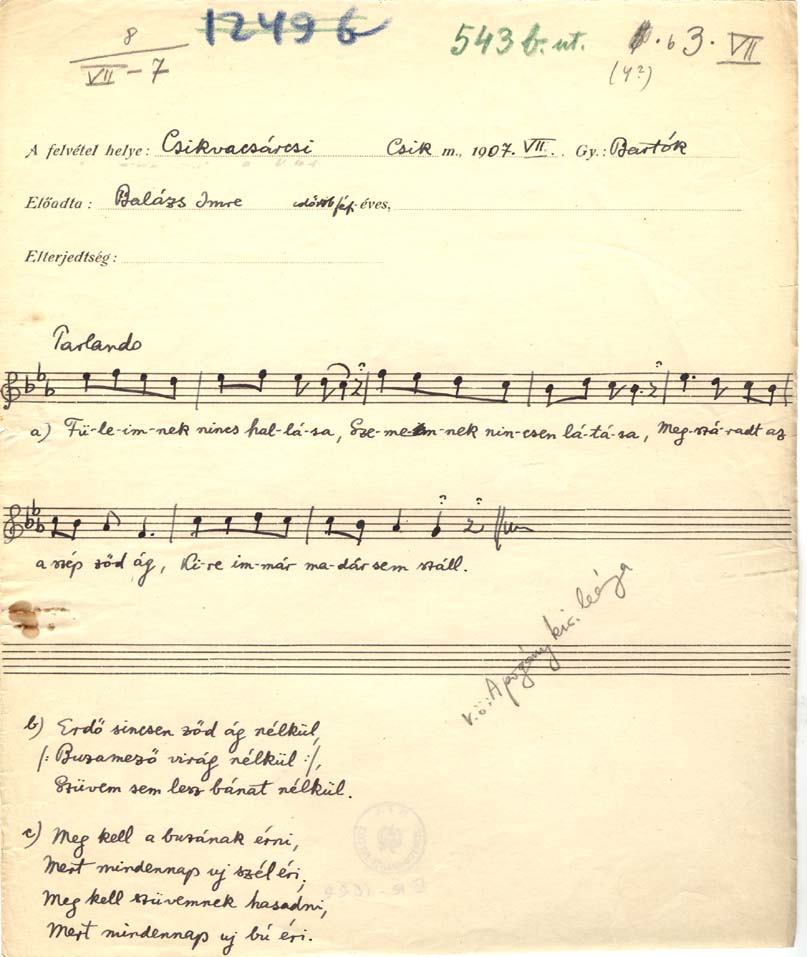 8
VII-7
12496
543 b. ut.
b 3. VII
(4?)
A felvétel helye: Csikvacsárcsi Csik m., 1907. VII. Gy.: Bartók
Előadta: Balázs Imre éves,
Elterjedtség:
Parlando
a) Fü-le-im-nek nincs hal-lá-sa, Sze-me-im-nek nin-csen lá-tá-sa, Meg-szá-radt az
a szép ződ ág, Ki-re im-már ma-dár sem száll.
v.ö: A pogány kir. leánya
b) Erdő sincsen ződ ág nélkül,
/: Buzamező virág nélkül :/,
Szüvem sem lesz bánat nélkül.
c) Meg kell a buzának érni,
Mert mindennap uj szél éri;
Meg kell szüvemnek hasadni,
Mert mindennap uj bú éri.